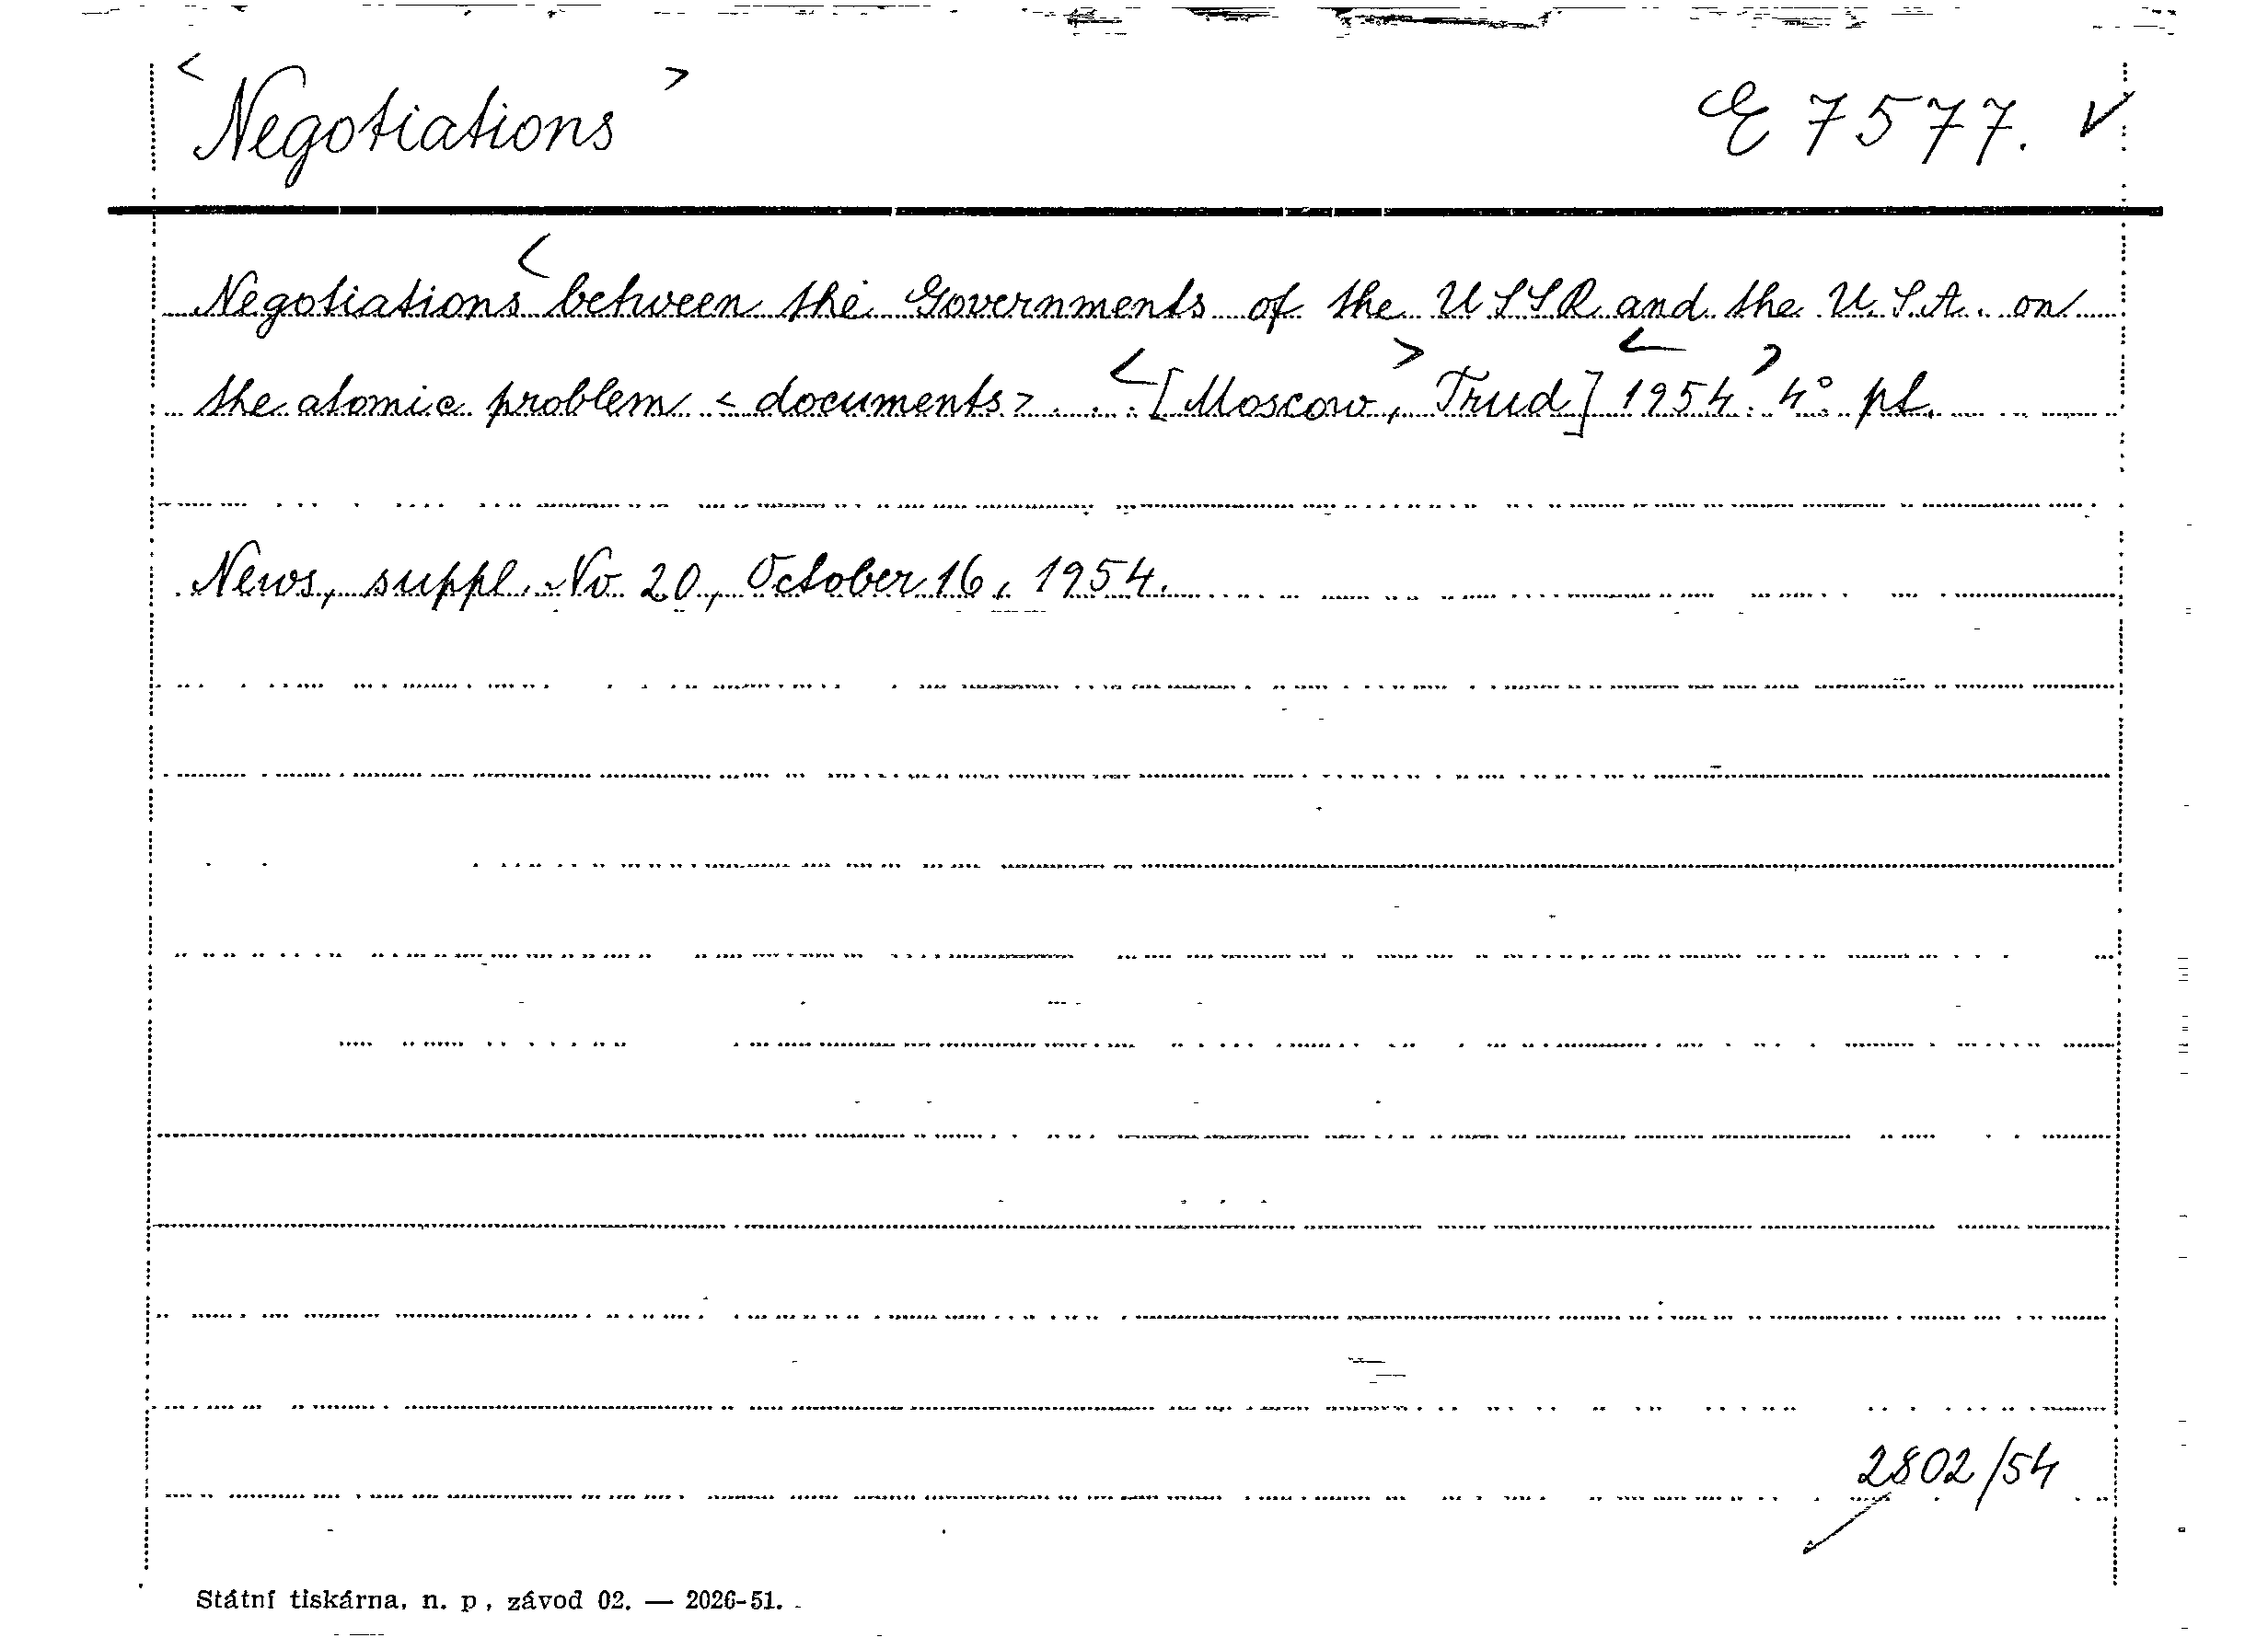 <Negotiations> E 7577. ✓
Negotiations < between the Governments of the USSR and the U.S.A. on
the atomic problem <documents> . . . <[Moscow,> Trud] <1954.> 4° pl.
News, suppl. No 20, October 16, 1954.
2802/54
Státní tiskárna, n. p., závod 02. — 2026-51.